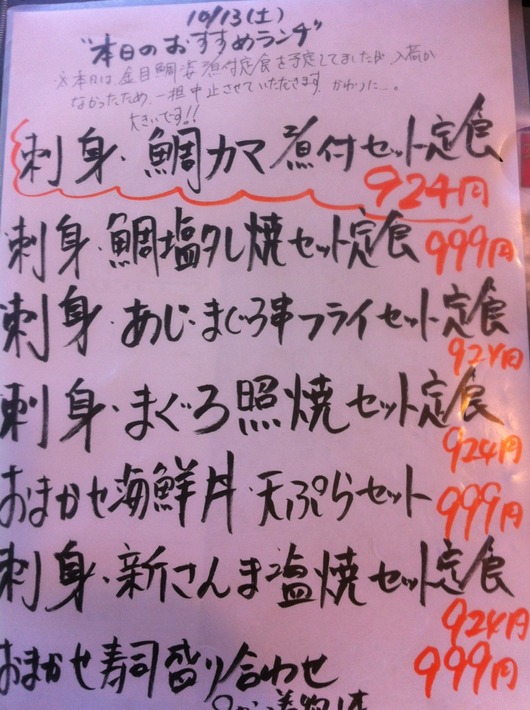 10/13(土)
"本日のおすすめランチ"
※本日は、金目鯛姿煮付定食を予定してましたが、入荷が
なかったため、一旦中止させていただきます。かわりに…。
大きいです!!
刺身・鯛カマ煮付セット定食
924円
刺身・鯛塩タレ焼セット定食 999円
刺身・あじ・まぐろ串フライセット定食
924円
刺身・まぐろ照焼セット定食
924円
おまかせ海鮮丼・天ぷらセット 999円
刺身・新さんま塩焼セット定食
924円
おまかせ寿司盛り合わせ 999円